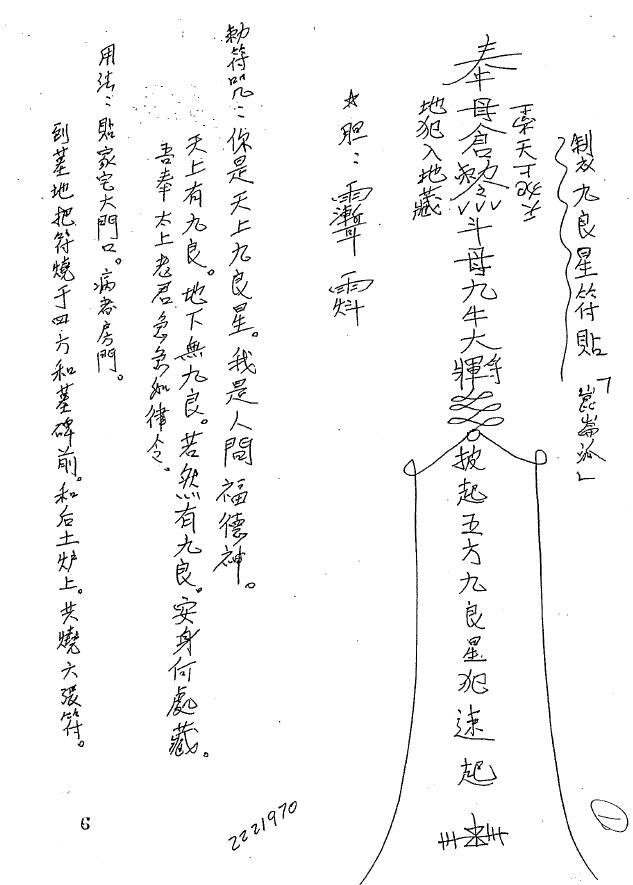 制服九良星符貼「崑崙派」
天犯
地犯入地藏
奉母倉勅令斗母九牛大輝符
披起五方九良星犯速起
☆胆：
勅符咒：你是天上九良星。我是人間福德神。
天上有九良。地下無九良。若然有九良。安身何處藏。
吾奉太上老君急急如律令。
用法：貼家宅大門口。病者房門。
到墓地把符燒于四方和墓碑前。和后土炉上。共燒六張符。
㊀
2221970
6